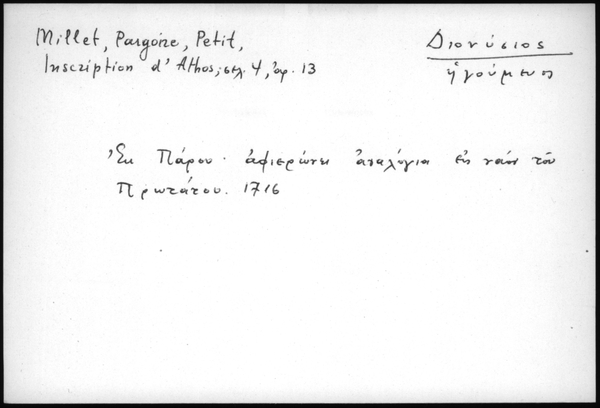 Millet, Pargoire, Petit,
Inscription d'Athos, σελ. 4, ἀρ. 13
Διονύσιος
ἡγούμενος
Ἐκ Πάρου· ἀφιερώνει ἀναλόγια εἰς ναόν τοῦ
Πρωτάτου. 1716